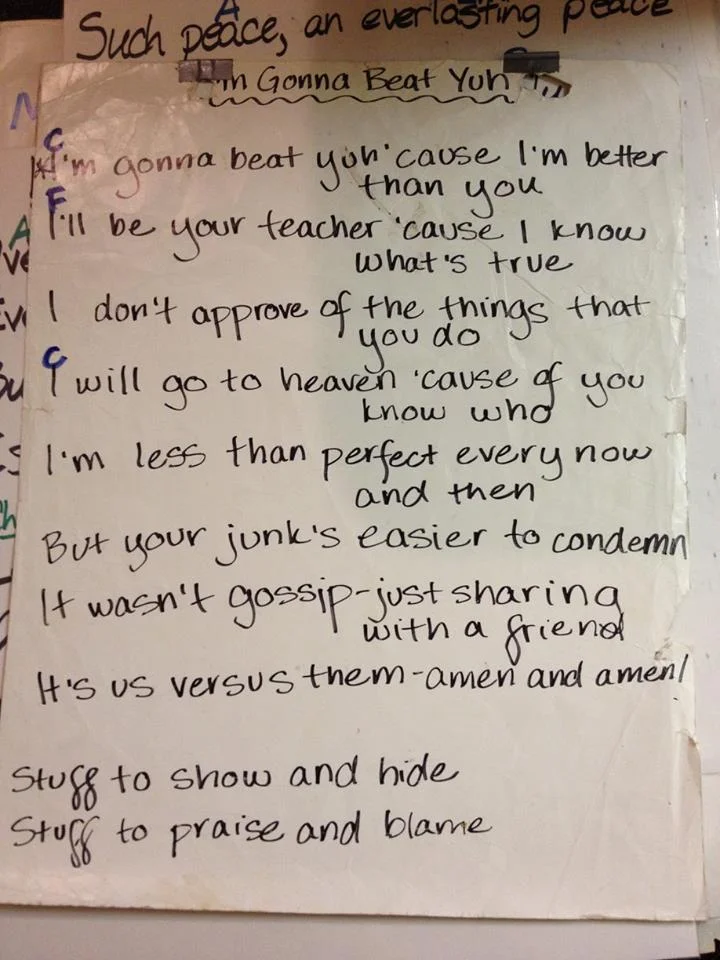 A
Such peace, an everlasting peace
Gonna Beat Yuh
C
I'm gonna beat yuh 'cause I'm better
than you
F
I'll be your teacher 'cause I know
what's true
I don't approve of the things that
you do
C
I will go to heaven 'cause of you
know who
I'm less than perfect every now
and then
But your junk's easier to condemn
It wasn't gossip-just sharing
with a friend
It's us versus them-amen and amen!
Stuff to show and hide
Stuff to praise and blame